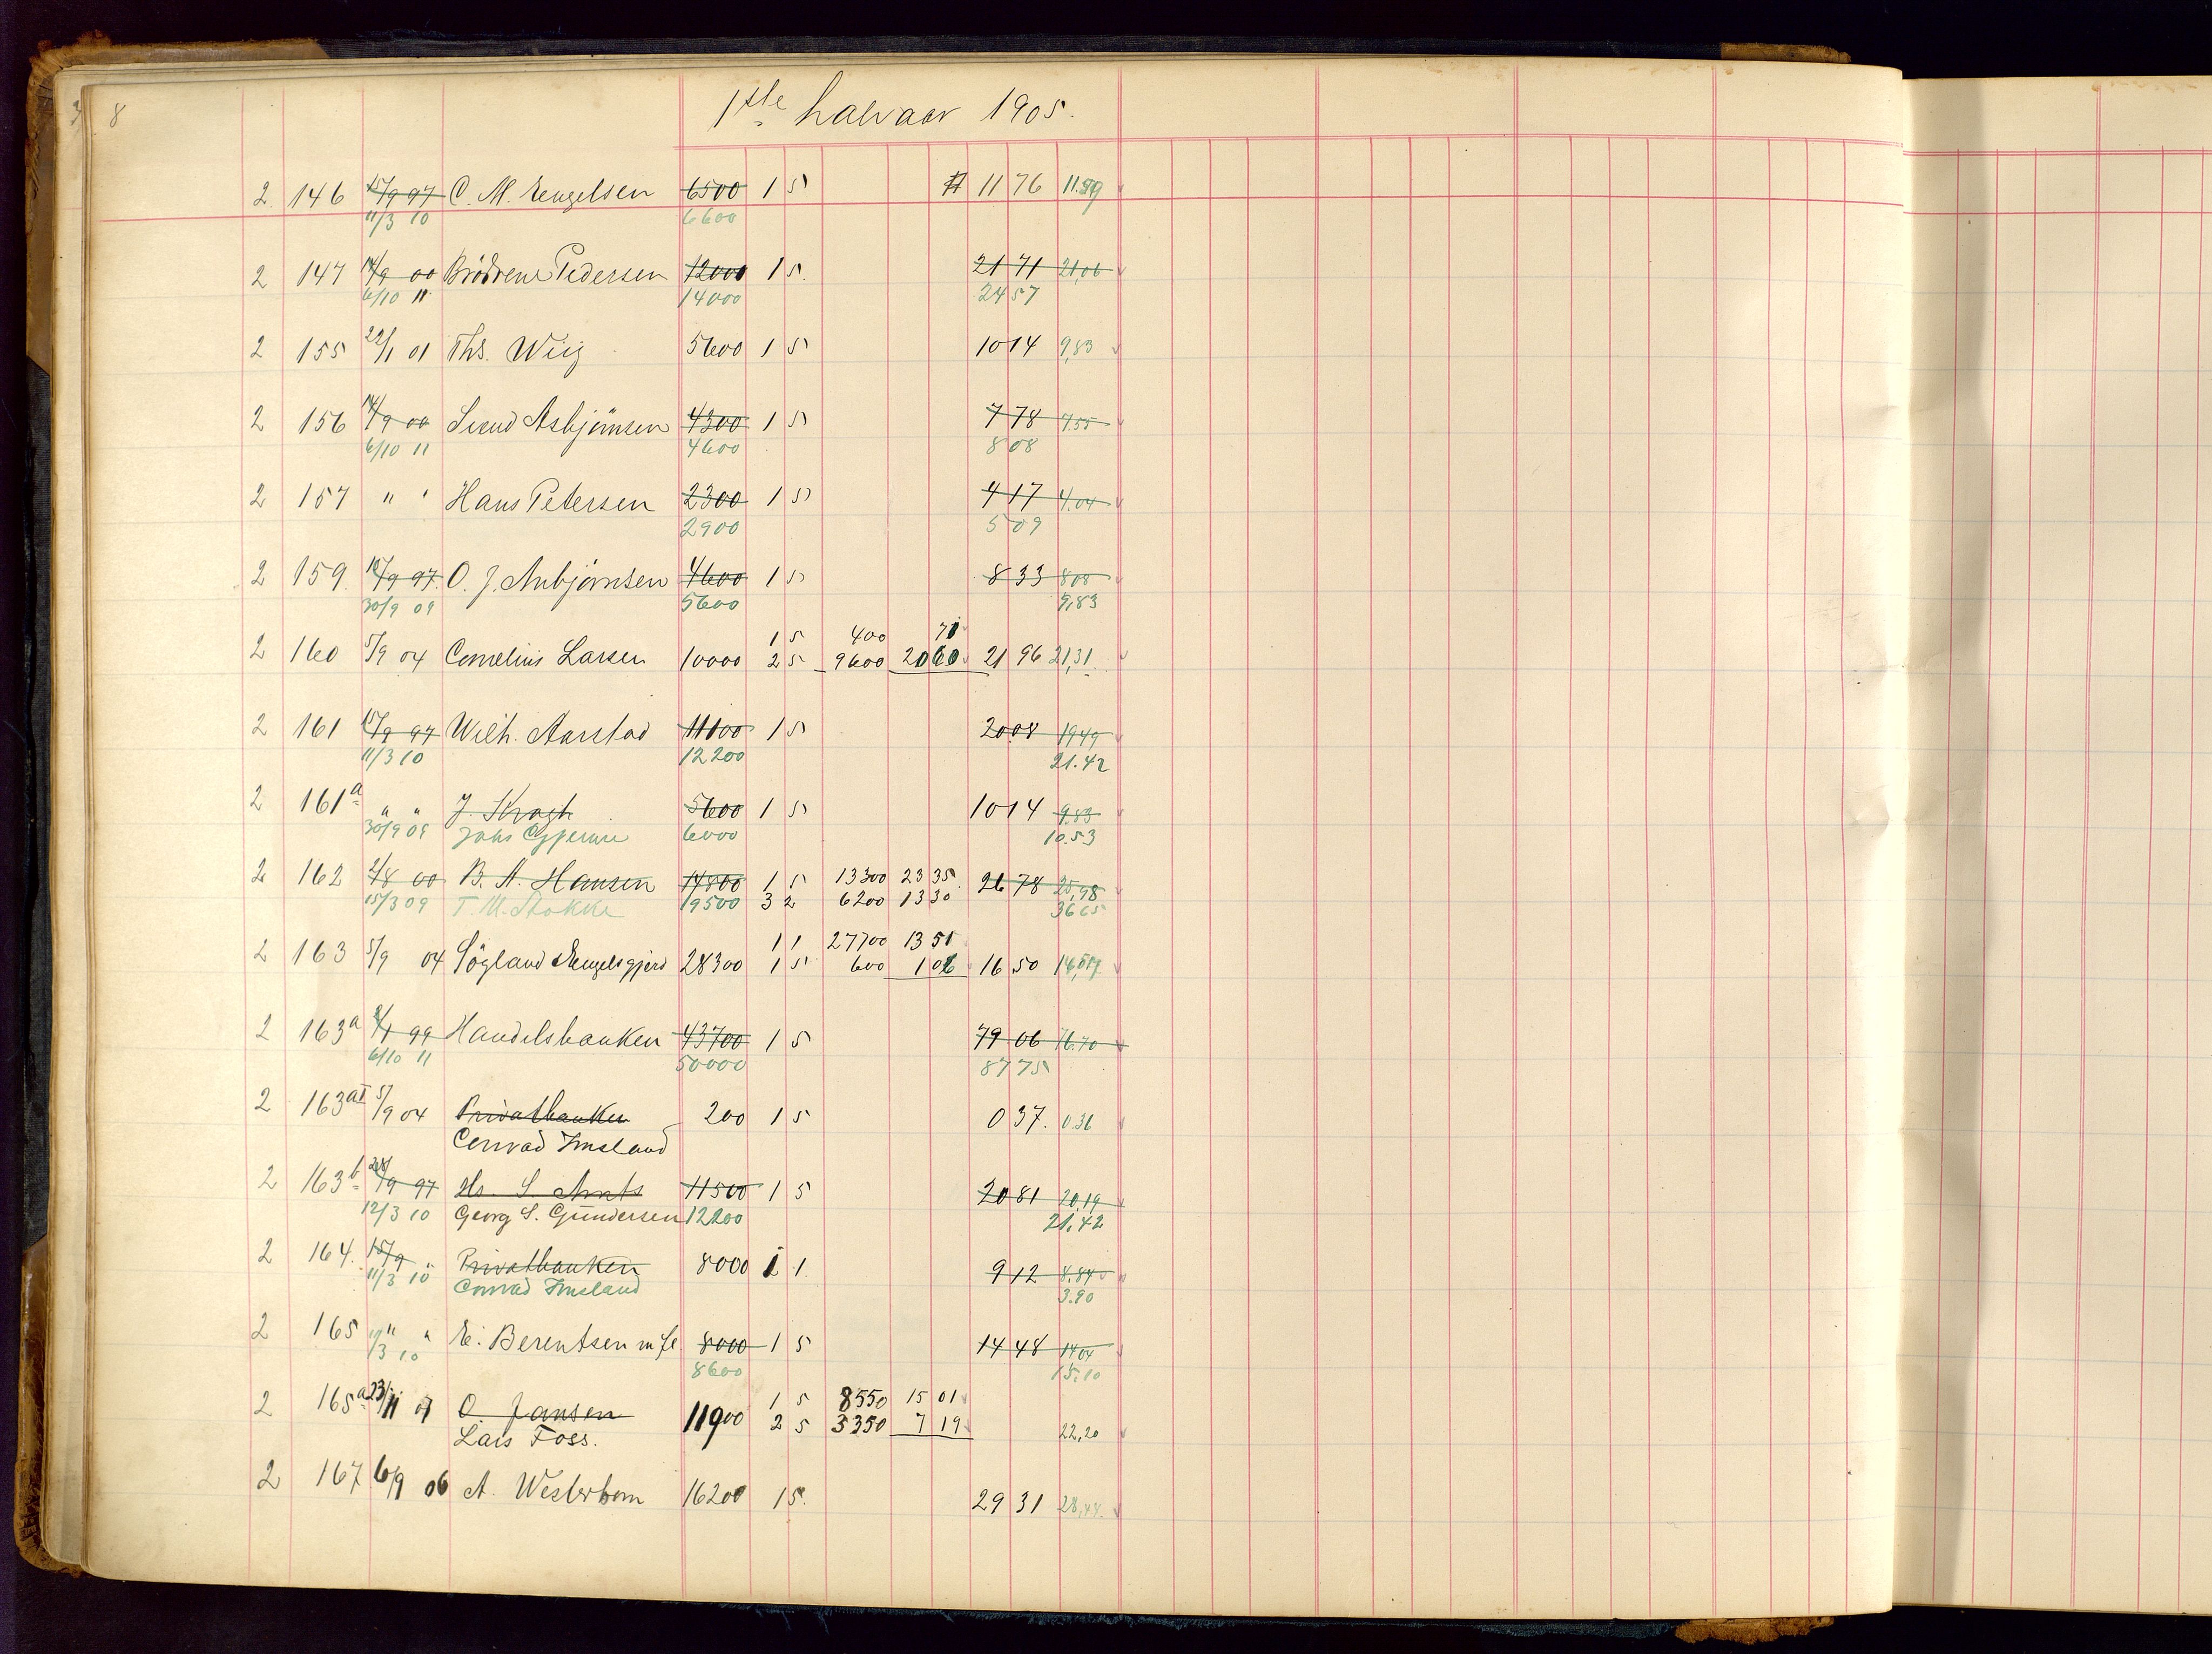 8
1ste halvaar 1905.
2 146 15/9 97 C. M. Engelsen 6500 1 5 11 76 11.59
11/3 10 6600
2 147 14/9 00 Brödrene Pedersen 12000 1 5. 21 71 21,06
6/10 11 14000 24 57
2 155 29/1 01 Ths. Wiig 5600 1 5 10 14 9,83
2 156 14/9 00 Svend Asbjörnsen 4300 1 5 7 78 7,55
6/10 11 4600 8 08
2 157 " " Hans Petersen 2300 1 5 4 17 4.04
2900 5 09
2 159 15/9 97. O. J. Anbjörnsen 4600 1 5 8 33 8 08
30/9 09 5600 9,83
1 5 400 71
2 160 5/9 04 Cornelius Larsen 10000 2 5 9600 20 60 21 96 21,31
2 161 15/9 97 Wilh. Aarstad 11100 1 5 20 08 19 49
11/3 10 12200 21.42
2 161a " " J. Kragh 5600 1 5 10 14 9.83
30/9 09 6000 10.53
2 162 2/8 00 B. A. Hansen 14800 1 5 13300 23 35 26 78 25,98
15/3 09 T. M. Stokke 19500 3 2 6200 13 30 36 65
1 1 27700 13 51
2 163 5/9 04 Sögland 28300 1 5 600 1 06 16 50
2 163a 2/1 99 Handelsbanken 43700 1 5 79 06 76.70
6/10 11 50000 87 75
2 163aI 5/9 04 Privatbanken 200 1 5 0 37. 0.36
Conrad Imsland
2 163b 28/9 97 11500 1 5 20 81 20,19
12/3 10 Georg S. Gundersen 12200 21.42
2 164. 15/9 " Privatbanken 8000 1 1. 9 12 8.84
11/3 10 Conrad Imsland 3.90
2 165 " " E. Berentsen m fl 8000 1 5 14 48 14 04
11/3 10 8600 15.10
2 165a 23/11 07 O. Jansen 11900 1 5 8550 15 01
Lars Foss. 2 5 3350 7 19 22,20
2 167 6/9 06 A. Westerbom 16200 1 5. 29 31 28,44